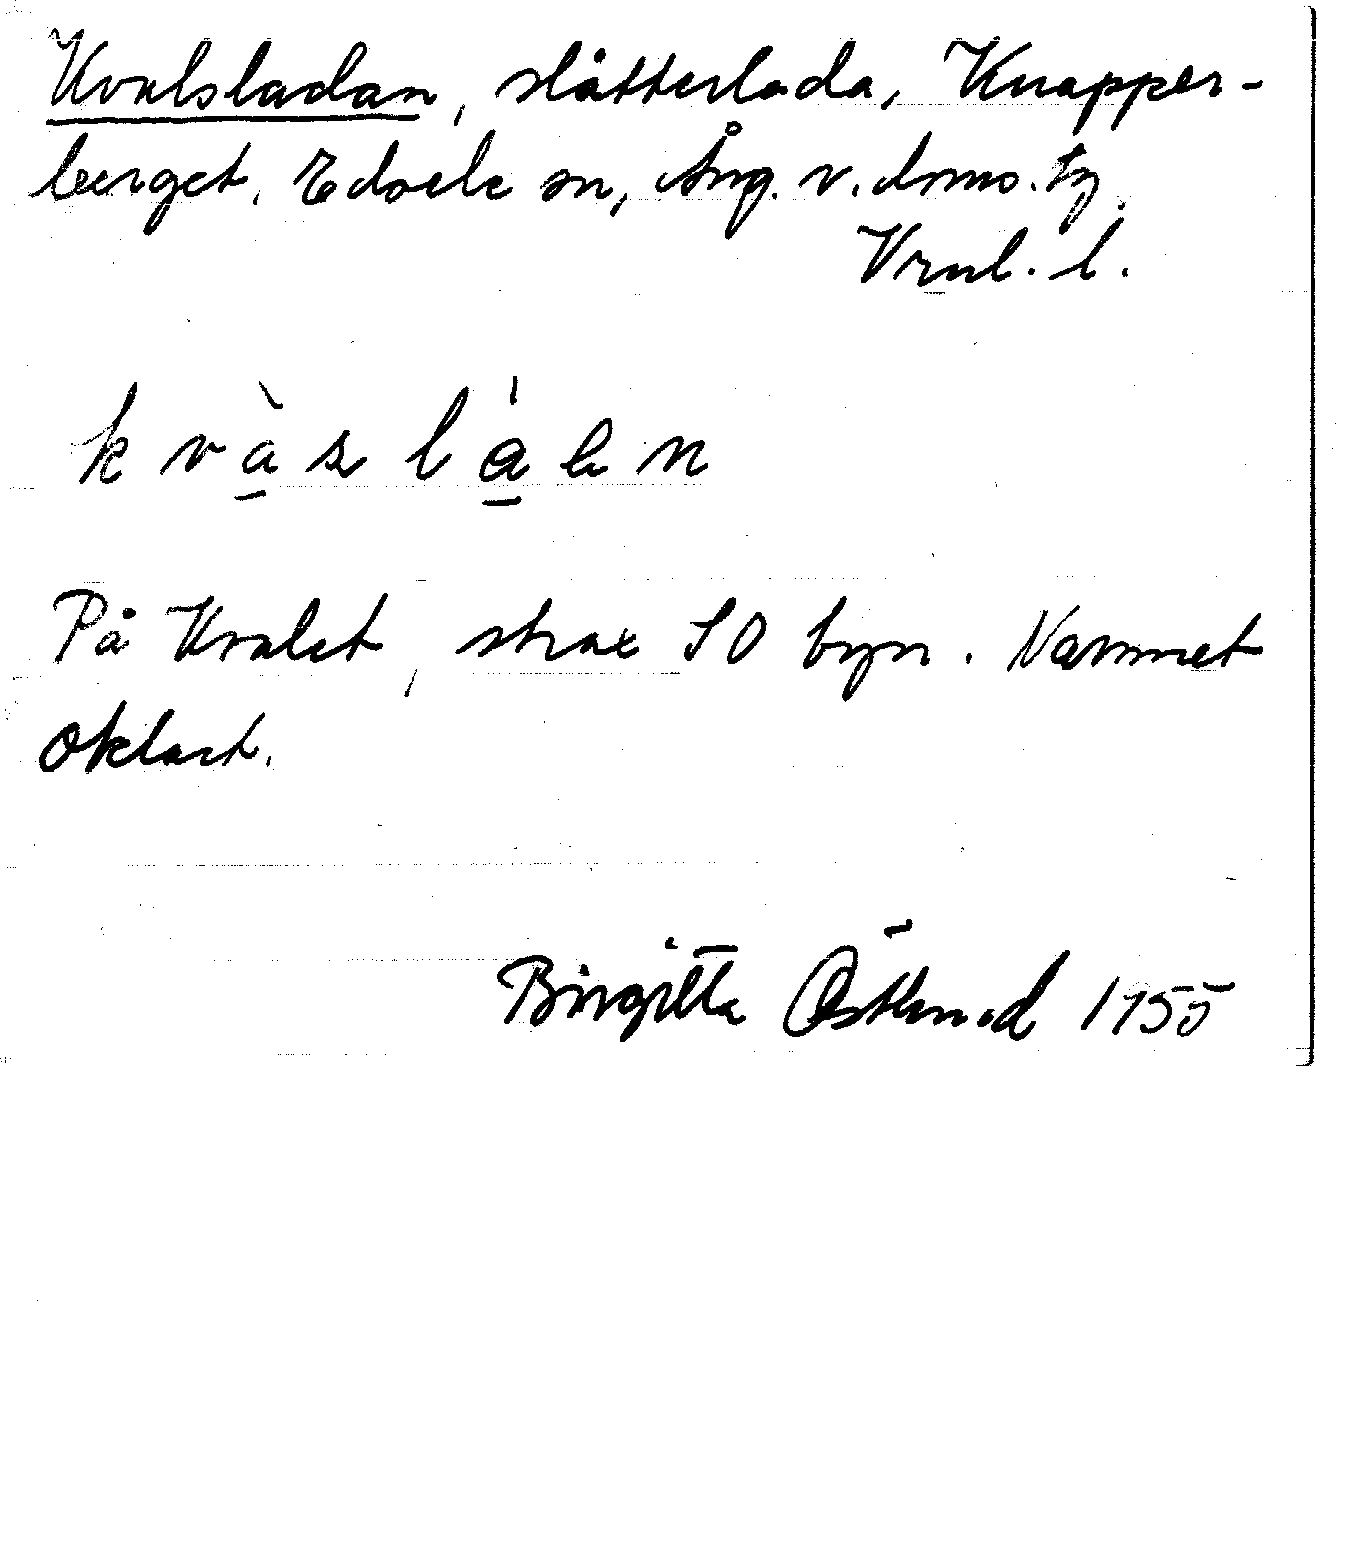 Kvalsladan, slåtterlada, Knapper-
berget. Edsele sn, Ång. v. dms. tg
Vrml. l.
k v à s l á e n
På Kvalet, strax SO byn. Namnet
oklart.
Birgitta Östlund 1955